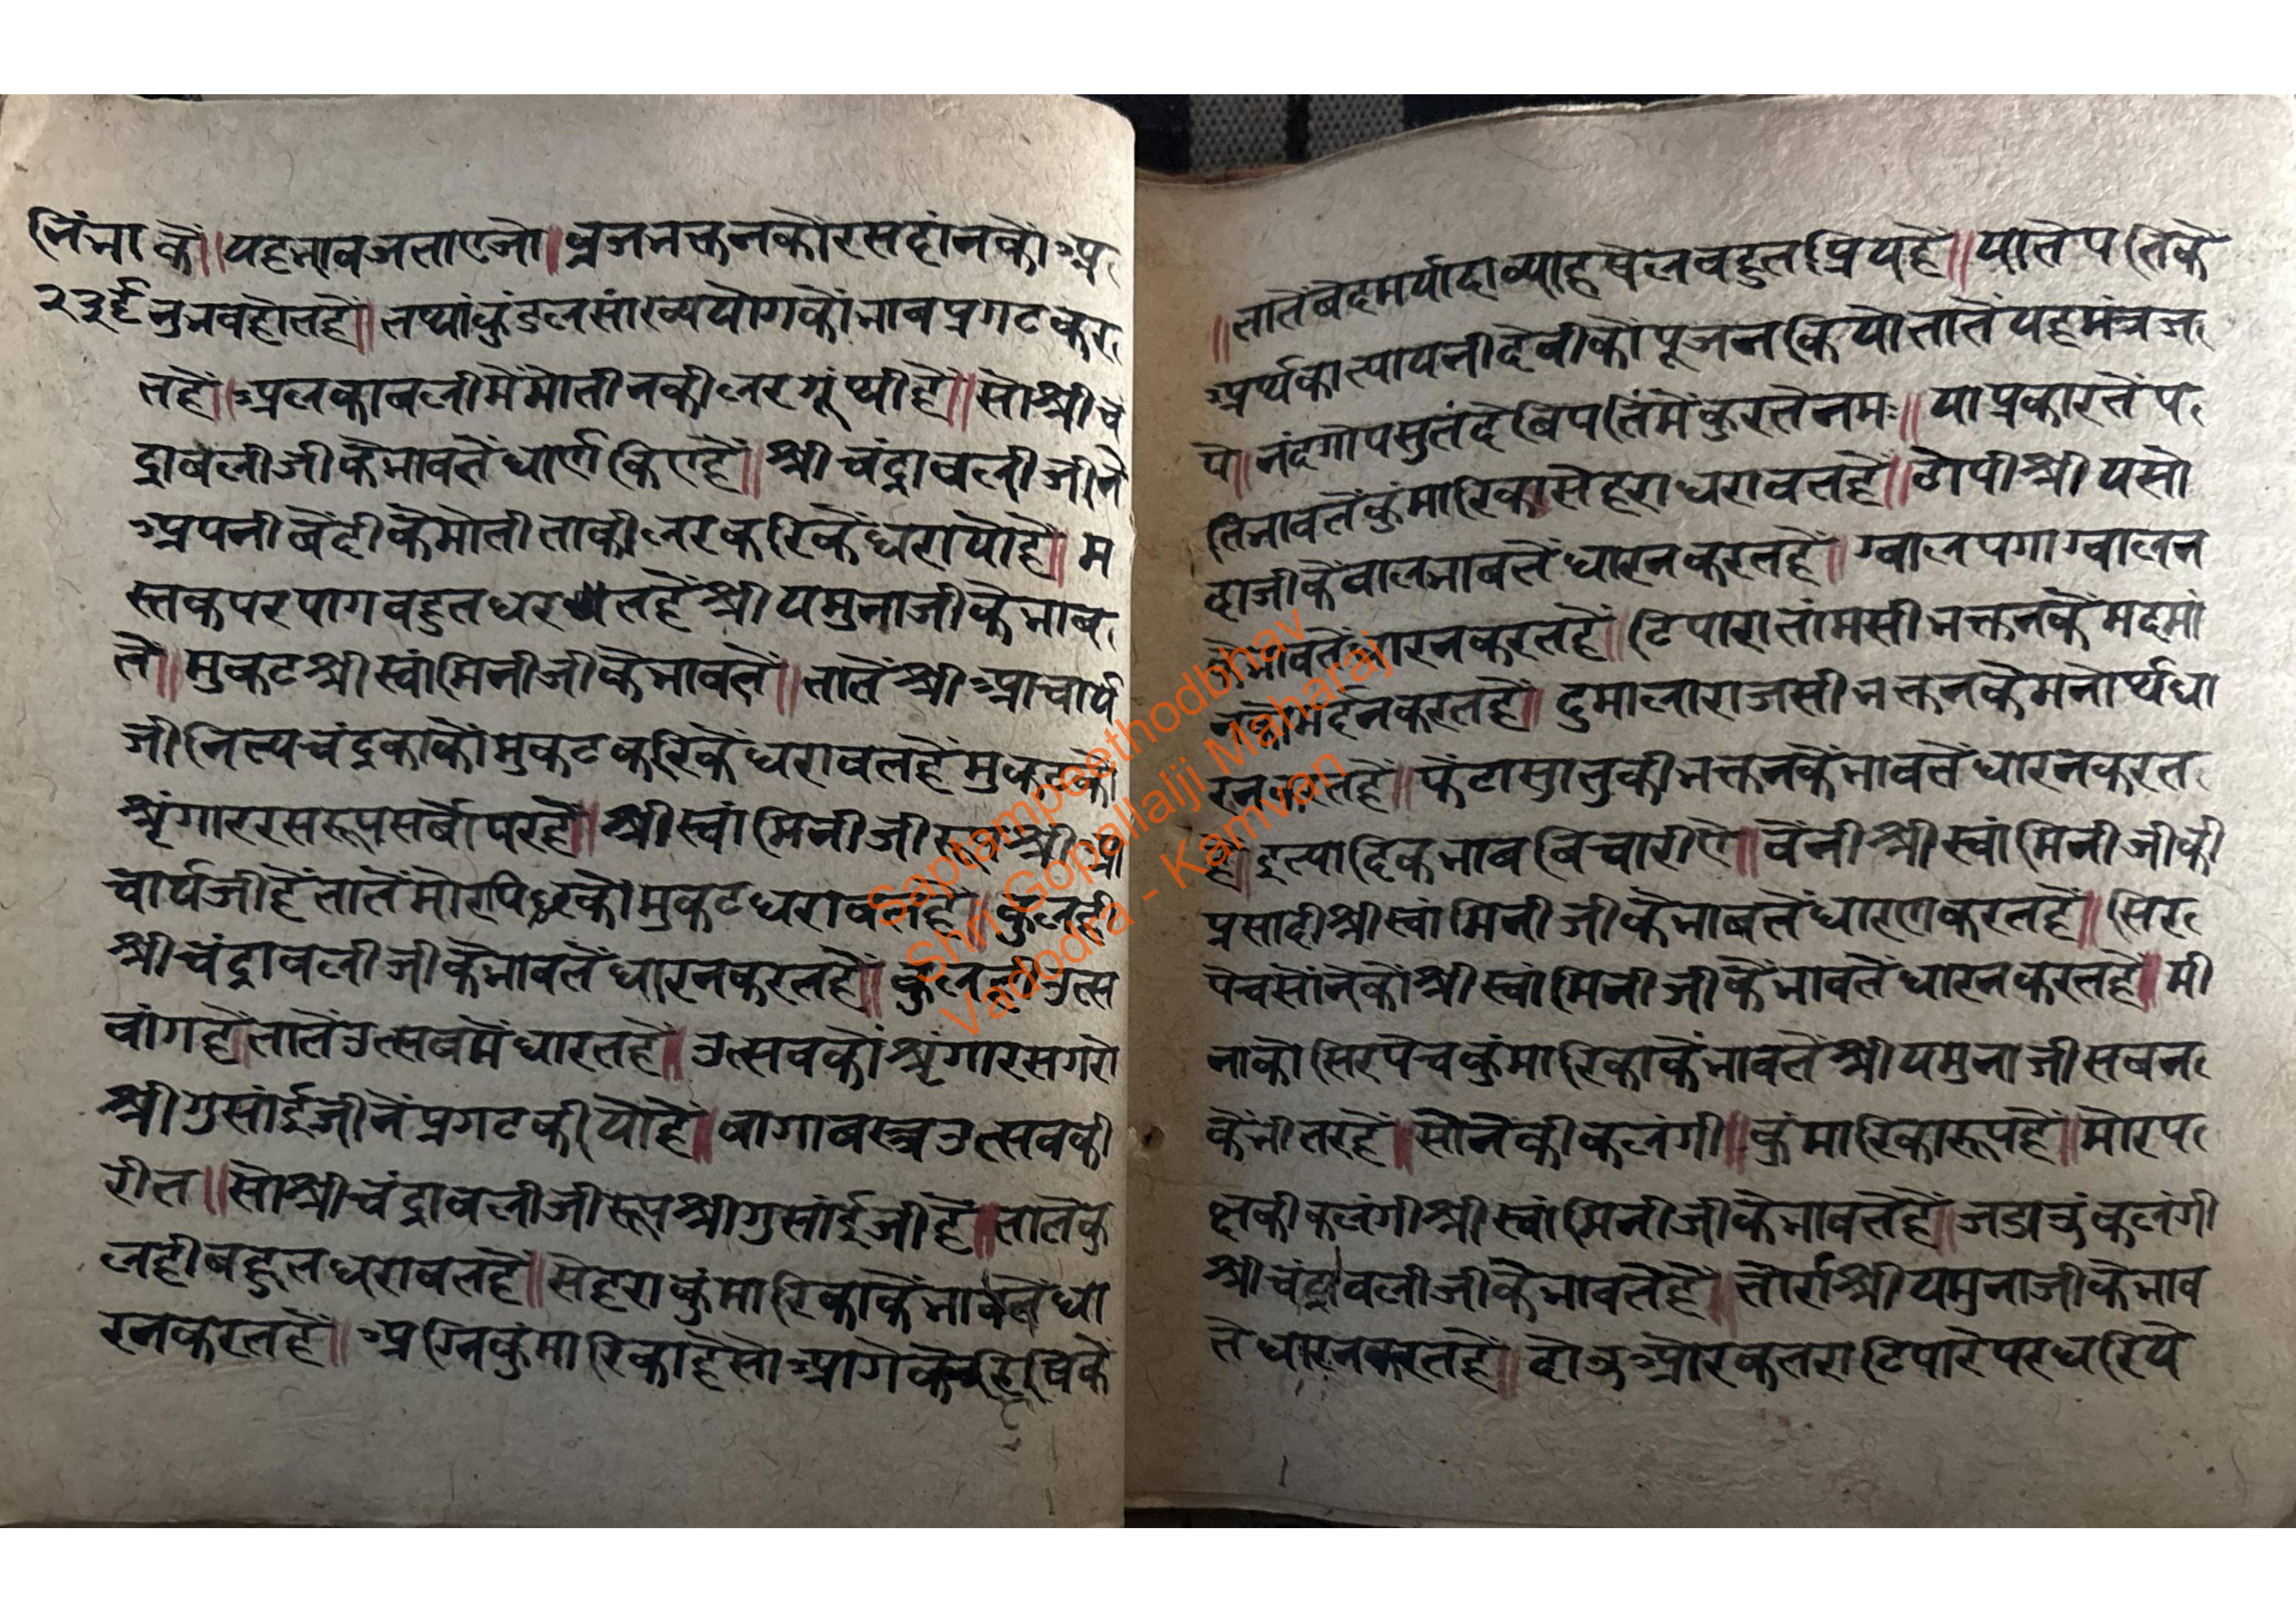 निं भा कें॥ यह भाव जताए जो॥ ब्रजभक्तन कों रस दांन कों अ
२३ नुभव होत है॥ तथां कुंडल सांख्य योग कों भाव प्रगट कर
त हें॥ अलकावली में मोतीन की लर गूंथी है॥ सो श्री चं
द्रावली जी के भाव तें धार्ण किए हें॥ श्री चंद्रावली जी नें
अपनी बेंदी के मोती ताकी लर करिकें धरायो है॥ म
स्तक पर पाग बहुत धरत हें श्री यमुना जी के भाव
तें॥ मुकट श्री स्वांमिनी जी के भाव तें॥ तातें श्री आचार्य
जी नित्य चंद्रका कों मुकट करिकें धरावत हें मुकट को
श्रृंगार रस रूप सर्वोपर है॥ श्री स्वांमिनी जी रूप श्री आ
चार्य जी हें तातें मोरपिछ कों मुकट धरावत हें॥ कुलही
श्री चंद्रावली जी के भाव तें धारन करत हें॥ कुलही उत्स
वांग है तातें उत्सव में धारत हें॥ उत्सव कों श्रृंगार सगरो
श्री गुसांई जी नें प्रगट कीयो हें॥ बागा बस्त्र उत्सव की
रीत॥ सो श्री चंद्रावली जी रूप श्री गुसांई जी हें॥ तातें कु
लही बहुत धरावत हें॥ सेहरा कुंमारिका कें भाव तें धा
रन करत हें॥ अग्निकुंमारिका हे सो आगें के ऋषि कें
॥ तातें बेद मर्यादा व्याह षेल बहुत प्रिय है॥ यातें पति के
अर्थ कात्यायनी देवी कों पूजन कियो तातें यह मंत्र ज
पे॥ नंदगोपसुतं देबि पतिं में कुरते नमः॥ या प्रकार तें प
ति भाव तें कुंमारिका सेहरा धरावत हें॥ टोपी श्री यसो
दा जी कें बाल भाव तें धारन करत हें॥ ग्वाल पगा ग्वालन
के भाव तें धारन करत हें॥ टिपारा तांमसी भक्तन कें मद मां
न कों मर्दन करत हें॥ दुमाला राजसी भक्तन कें मनोर्थ धा
रन करत हें॥ फेंटा सातुकी भक्तन कें भाव तें धारन करत
हें॥ इत्यादिक भाव बिचारीऐ॥ वेंनी श्री स्वांमिनी जी की
प्रसादी श्री स्वांमिनी जी के भाव तें धारण करत हें॥ सिर
पेच सोंने कों श्री स्वांमिनी जी कें भाव तें धारन करत हें॥ मी
ना को सिरपेच कुंमारिका कें भाव तें श्री यमुना जी सबन
कें भीतर हें॥ सोंनें की कलंगी॥ कुंमारिका रूप हें॥ मोरप
क्ष की कलंगी श्री स्वांमिनी जी के भाव तें हें॥ जडाऊ कलंगी
श्री चंद्रावली जी कें भाव तें हें॥ तोर्रा श्री यमुना जी कें भाव
तें धारन करत हें॥ दोऊ और कतरा टिपारे पर धरिये
Saptampeethodbhav
Shri Gopallalji Maharaj
Vadodra - Kamvan